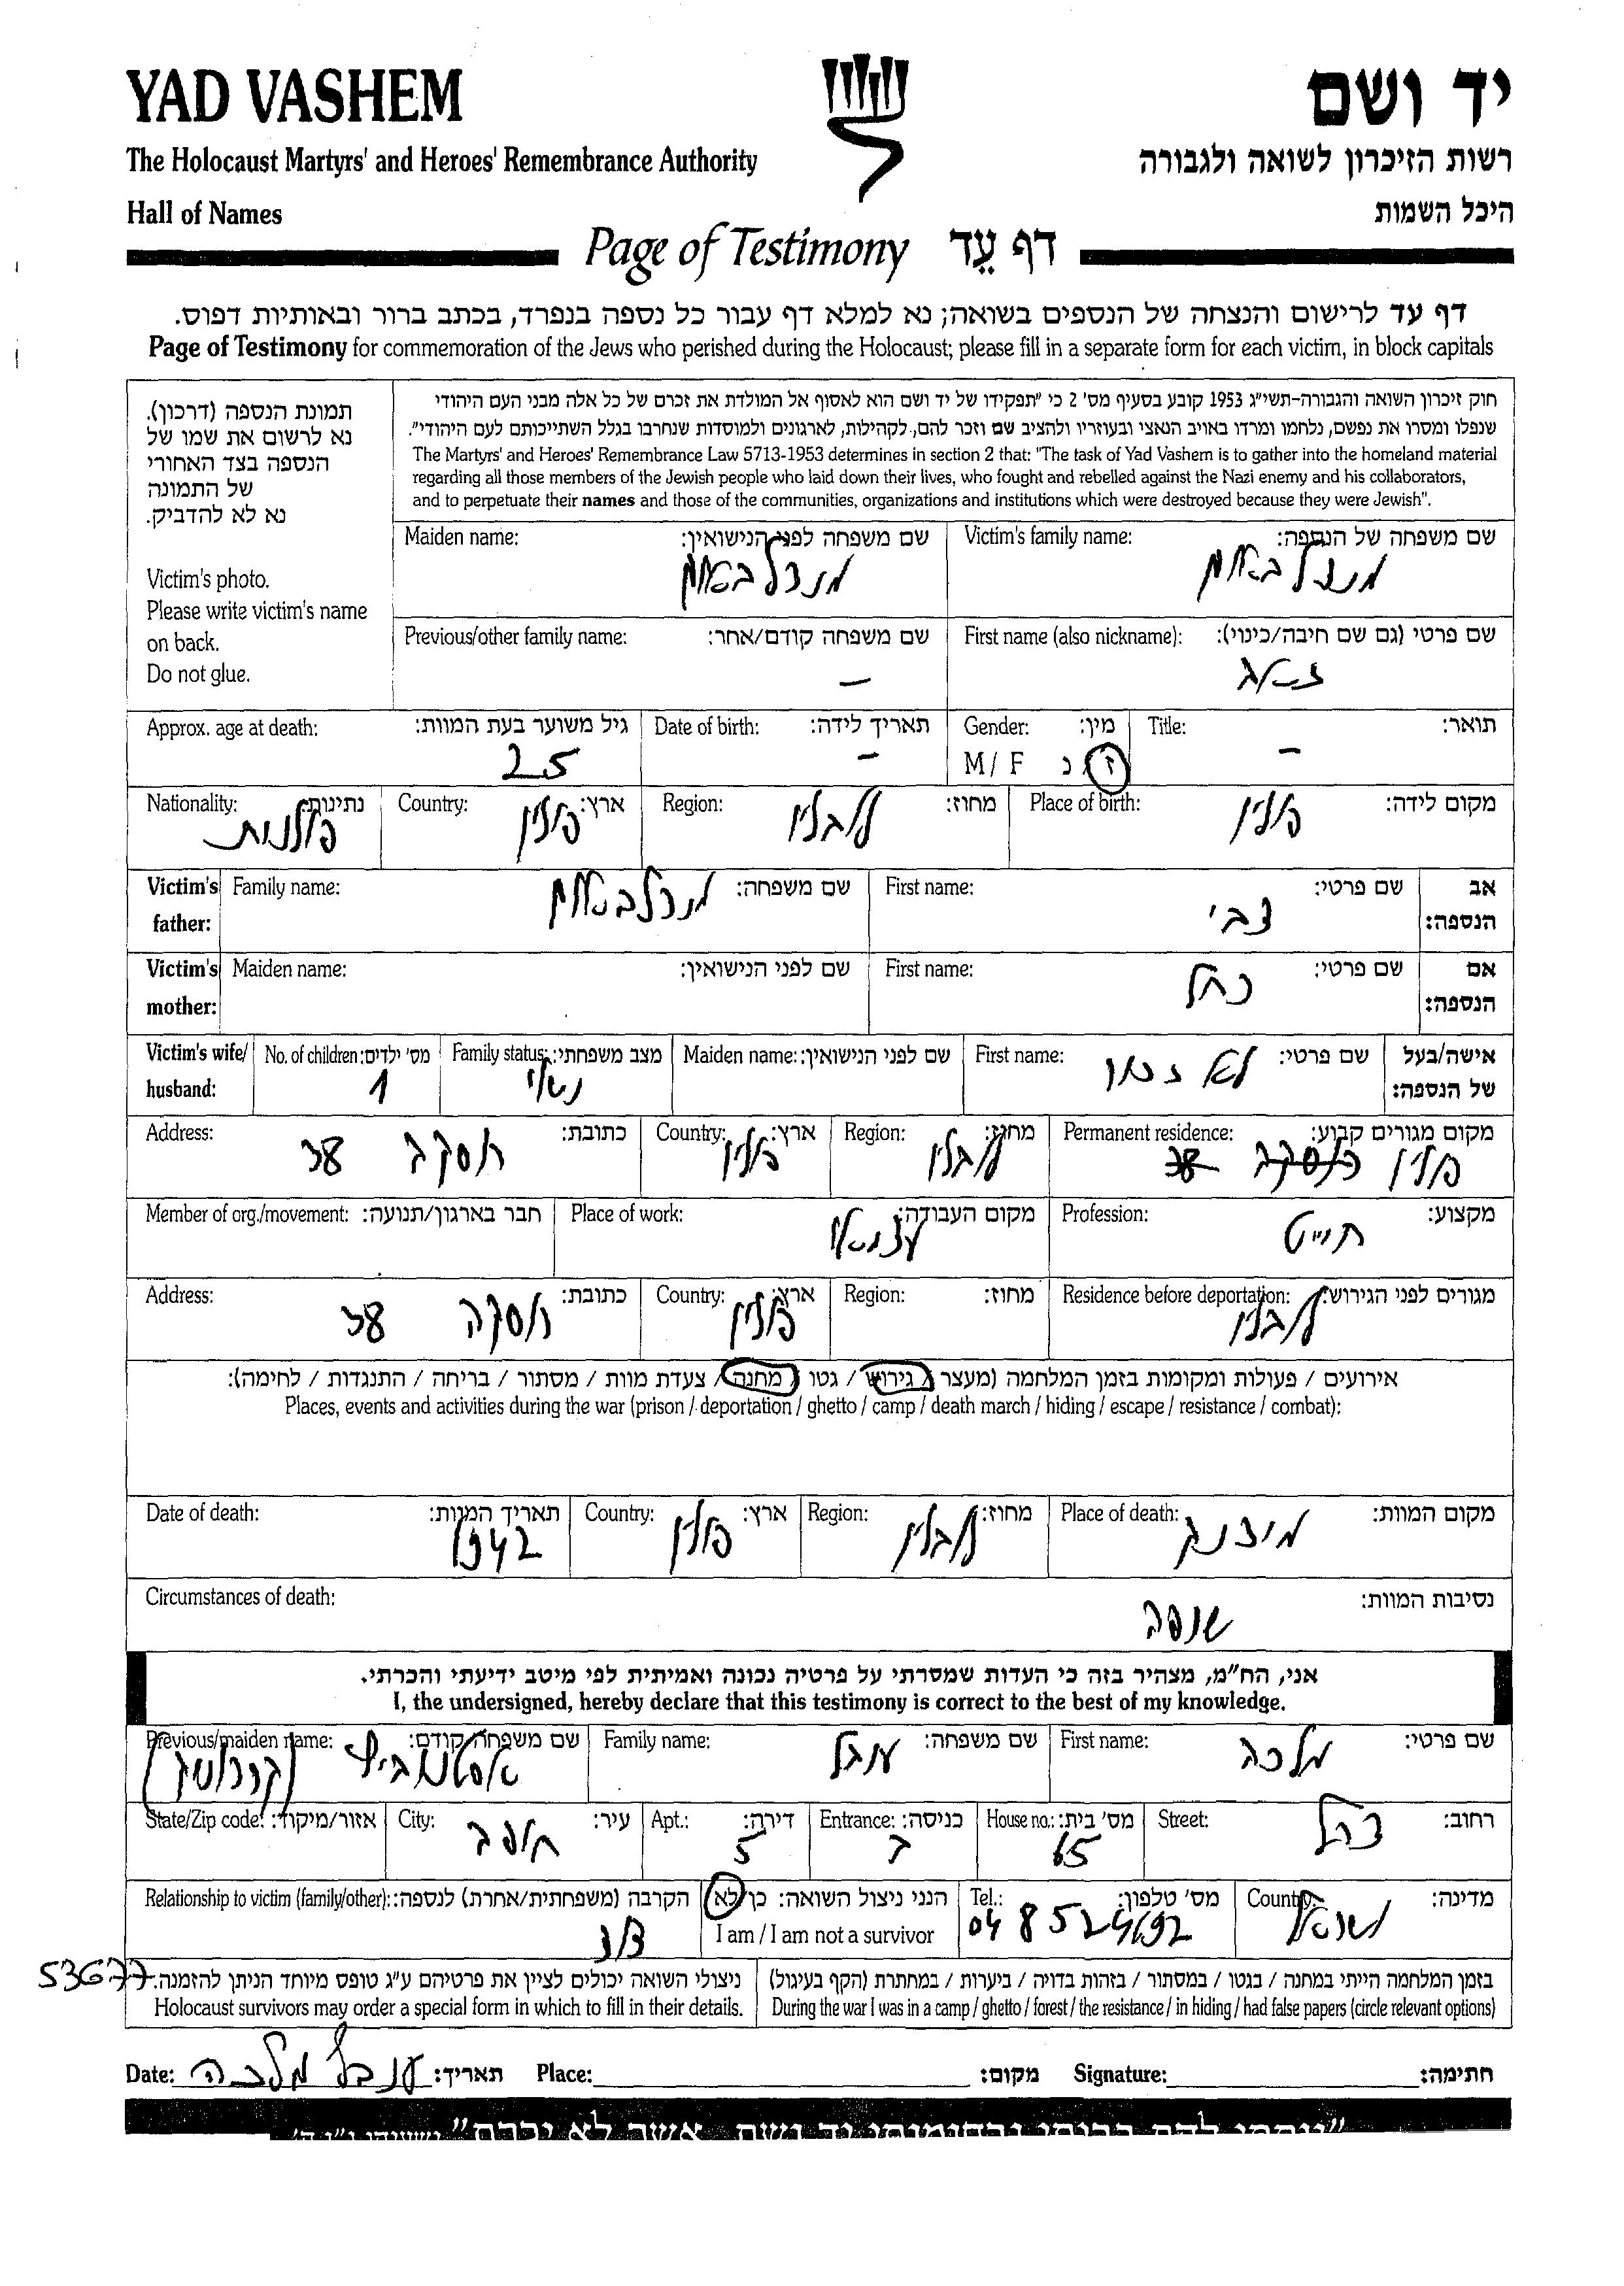 YAD VASHEM
יד ושם
The Holocaust Martyrs' and Heroes' Remembrance Authority
רשות הזיכרון לשואה ולגבורה
Hall of Names
היכל השמות
Page of Testimony דף עֵד
דף עד לרישום והנצחה של הנספים בשואה; נא למלא דף עבור כל נספה בנפרד, בכתב ברור ובאותיות דפוס.
Page of Testimony for commemoration of the Jews who perished during the Holocaust; please fill in a separate form for each victim, in block capitals
תמונת הנספה (דרכון).
נא לרשום את שמו של
הנספה בצד האחורי
של התמונה
נא לא להדביק.
Victim's photo.
Please write victim's name
on back.
Do not glue.
חוק זיכרון השואה והגבורה-תשי"ג 1953 קובע בסעיף מס' 2 כי "תפקידו של יד ושם הוא לאסוף אל המולדת את זכרם של כל אלה מבני העם היהודי
שנפלו ומסרו את נפשם, נלחמו ומרדו באויב הנאצי ובעוזריו ולהציב שם וזכר להם, לקהילות, לארגונים ולמוסדות שנחרבו בגלל השתייכותם לעם היהודי".
The Martyrs' and Heroes' Remembrance Law 5713-1953 determines in section 2 that: "The task of Yad Vashem is to gather into the homeland material
regarding all those members of the Jewish people who laid down their lives, who fought and rebelled against the Nazi enemy and his collaborators,
and to perpetuate their names and those of the communities, organizations and institutions which were destroyed because they were Jewish".
Victim's family name: שם משפחה של הנספה:
מנדלבאום
Maiden name: שם משפחה לפני הנישואין:
מנדלבאום
First name (also nickname): שם פרטי (גם שם חיבה/כינוי):
Previous/other family name: שם משפחה קודם/אחר:
–
Title: תואר:
–
Gender: מין:
M / F ז / נ
Date of birth: תאריך לידה:
–
Approx. age at death: גיל משוער בעת המוות:
25
Place of birth: מקום לידה:
פולין
Region: מחוז:
לובלין
Country: ארץ:
פולין
Nationality: נתינות:
פולנית
Victim's father: אב הנספה:
First name: שם פרטי:
צבי
Family name: שם משפחה:
מנדלבאום
Victim's mother: אם הנספה:
First name: שם פרטי:
רחל
Maiden name: שם לפני הנישואין:
Victim's wife/ husband: אישה/בעל של הנספה:
First name: שם פרטי:
לא זכור
Maiden name: שם לפני הנישואין:
Family status: מצב משפחתי:
נשוי
No. of children: מס' ילדים:
1
Permanent residence: מקום מגורים קבוע:
פולין
Region: מחוז:
לובלין
Country: ארץ:
פולין
Address: כתובת:
רוסקה 38
Profession: מקצוע:
חייט
Place of work: מקום העבודה:
עצמאי
Member of org./movement: חבר בארגון/תנועה:
Residence before deportation: מגורים לפני הגירוש:
לובלין
Region: מחוז:
Country: ארץ:
פולין
Address: כתובת:
רוסקה 38
אירועים / פעולות ומקומות בזמן המלחמה (מעצר / גירוש / גטו / מחנה / צעדת מוות / מסתור / בריחה / התנגדות / לחימה):
Places, events and activities during the war (prison / deportation / ghetto / camp / death march / hiding / escape / resistance / combat):
Place of death: מקום המוות:
מיידנק
Region: מחוז:
לובלין
Country: ארץ:
פולין
Date of death: תאריך המוות:
1942
Circumstances of death: נסיבות המוות:
שנספה
אני, הח"מ, מצהיר בזה כי העדות שמסרתי על פרטיה נכונה ואמיתית לפי מיטב ידיעתי והכרתי.
I, the undersigned, hereby declare that this testimony is correct to the best of my knowledge.
First name: שם פרטי:
מלכה
Family name: שם משפחה:
ענבל
Previous/maiden name: שם משפחה קודם:
Street: רחוב:
House no.: מס' בית:
65
Entrance: כניסה:
Apt.: דירה:
5
City: עיר:
חיפה
State/Zip code: אזור/מיקוד:
Country: מדינה:
ישראל
Tel.: מס' טלפון:
04 8524692
הנני ניצול השואה: כן / לא
I am / I am not a survivor
Relationship to victim (family/other): הקרבה (משפחתית/אחרת) לנספה:
בזמן המלחמה הייתי במחנה / בגטו / במסתור / בזהות בדויה / ביערות / במחתרת (הקף בעיגול)
During the war I was in a camp / ghetto / forest / the resistance / in hiding / had false papers (circle relevant options)
ניצולי השואה יכולים לציין את פרטיהם ע"ג טופס מיוחד הניתן להזמנה.
Holocaust survivors may order a special form in which to fill in their details.
53677
Date: ענבל מלכה תאריך: Place: מקום: Signature: חתימה: